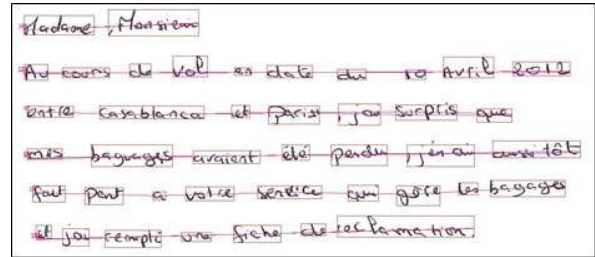 Madame, Monsieur
Au cours de vol en date du 10 Avril 2012
entre casablanca et Paris, j'ai surpris que
mes baguages avaient été perdu, j'en ai aussi tôt
fait part a votre service qui gére les bagages
et j'ai rempli une fiche de réclamation.